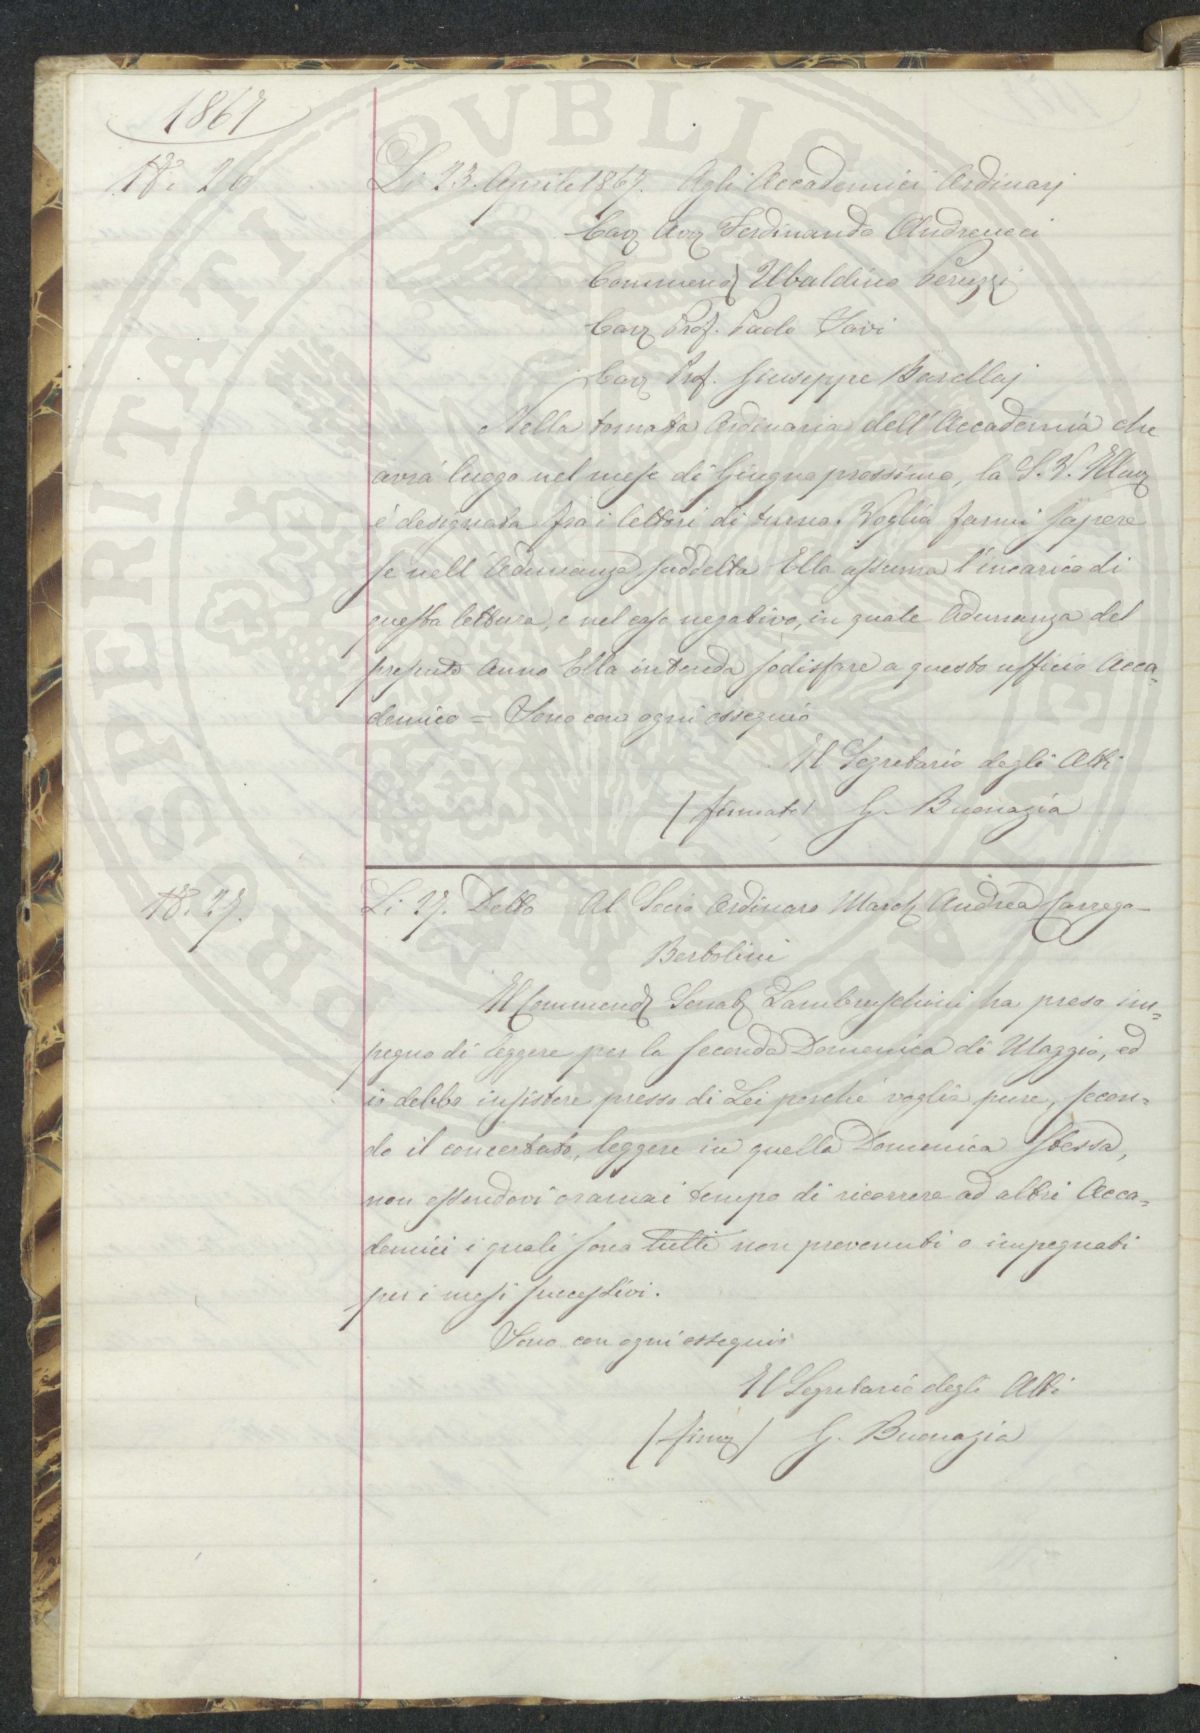 1867
N.° 26
Li 23. Aprile 1867. Agli Accademici Ordinarj
Cav Avv Ferdinando Andreucci
Commend Ubaldino Peruzzi
Cav Prof. Paolo Savi
Cav Prof. Giuseppe Barellaj
Nella tornata Ordinaria dell'Accademia che
avrà luogo nel mese di Giugno prossimo, la S. V. Illma
è designata fra i lettori di turno. Voglia farmi sapere
se nell'Adunanza suddetta Ella assuma l'incarico di
questa lettura, e nel caso negativo, in quale Adunanza del
presente Anno Ella intenda sodisfare a questo ufficio Acca=
demico = Sono con ogni ossequio
Il Segretario degli Atti
(firmato) G. Buonazia
N.° 27.
Li 27. Detto Al Socio Ordinaro March Andrea Carrega-
Bertolini
Il Commend Senat Lambruschini ha preso im=
pegno di leggere per la seconda Domenica di Maggio, ed
io debbo insistere presso di Lei perché voglia pure, secon=
do il concertato, leggere in quella Domenica stessa,
non essendovi oramai tempo di ricorrere ad altri Acca=
demici i quali sono tutti non prevenuti o impegnati
per i mesi successivi.
Sono con ogni ossequio
Il Segretario degli Atti
(firm) G. Buonazia
PROSPERITATI PVBLICAE AVGENDAE